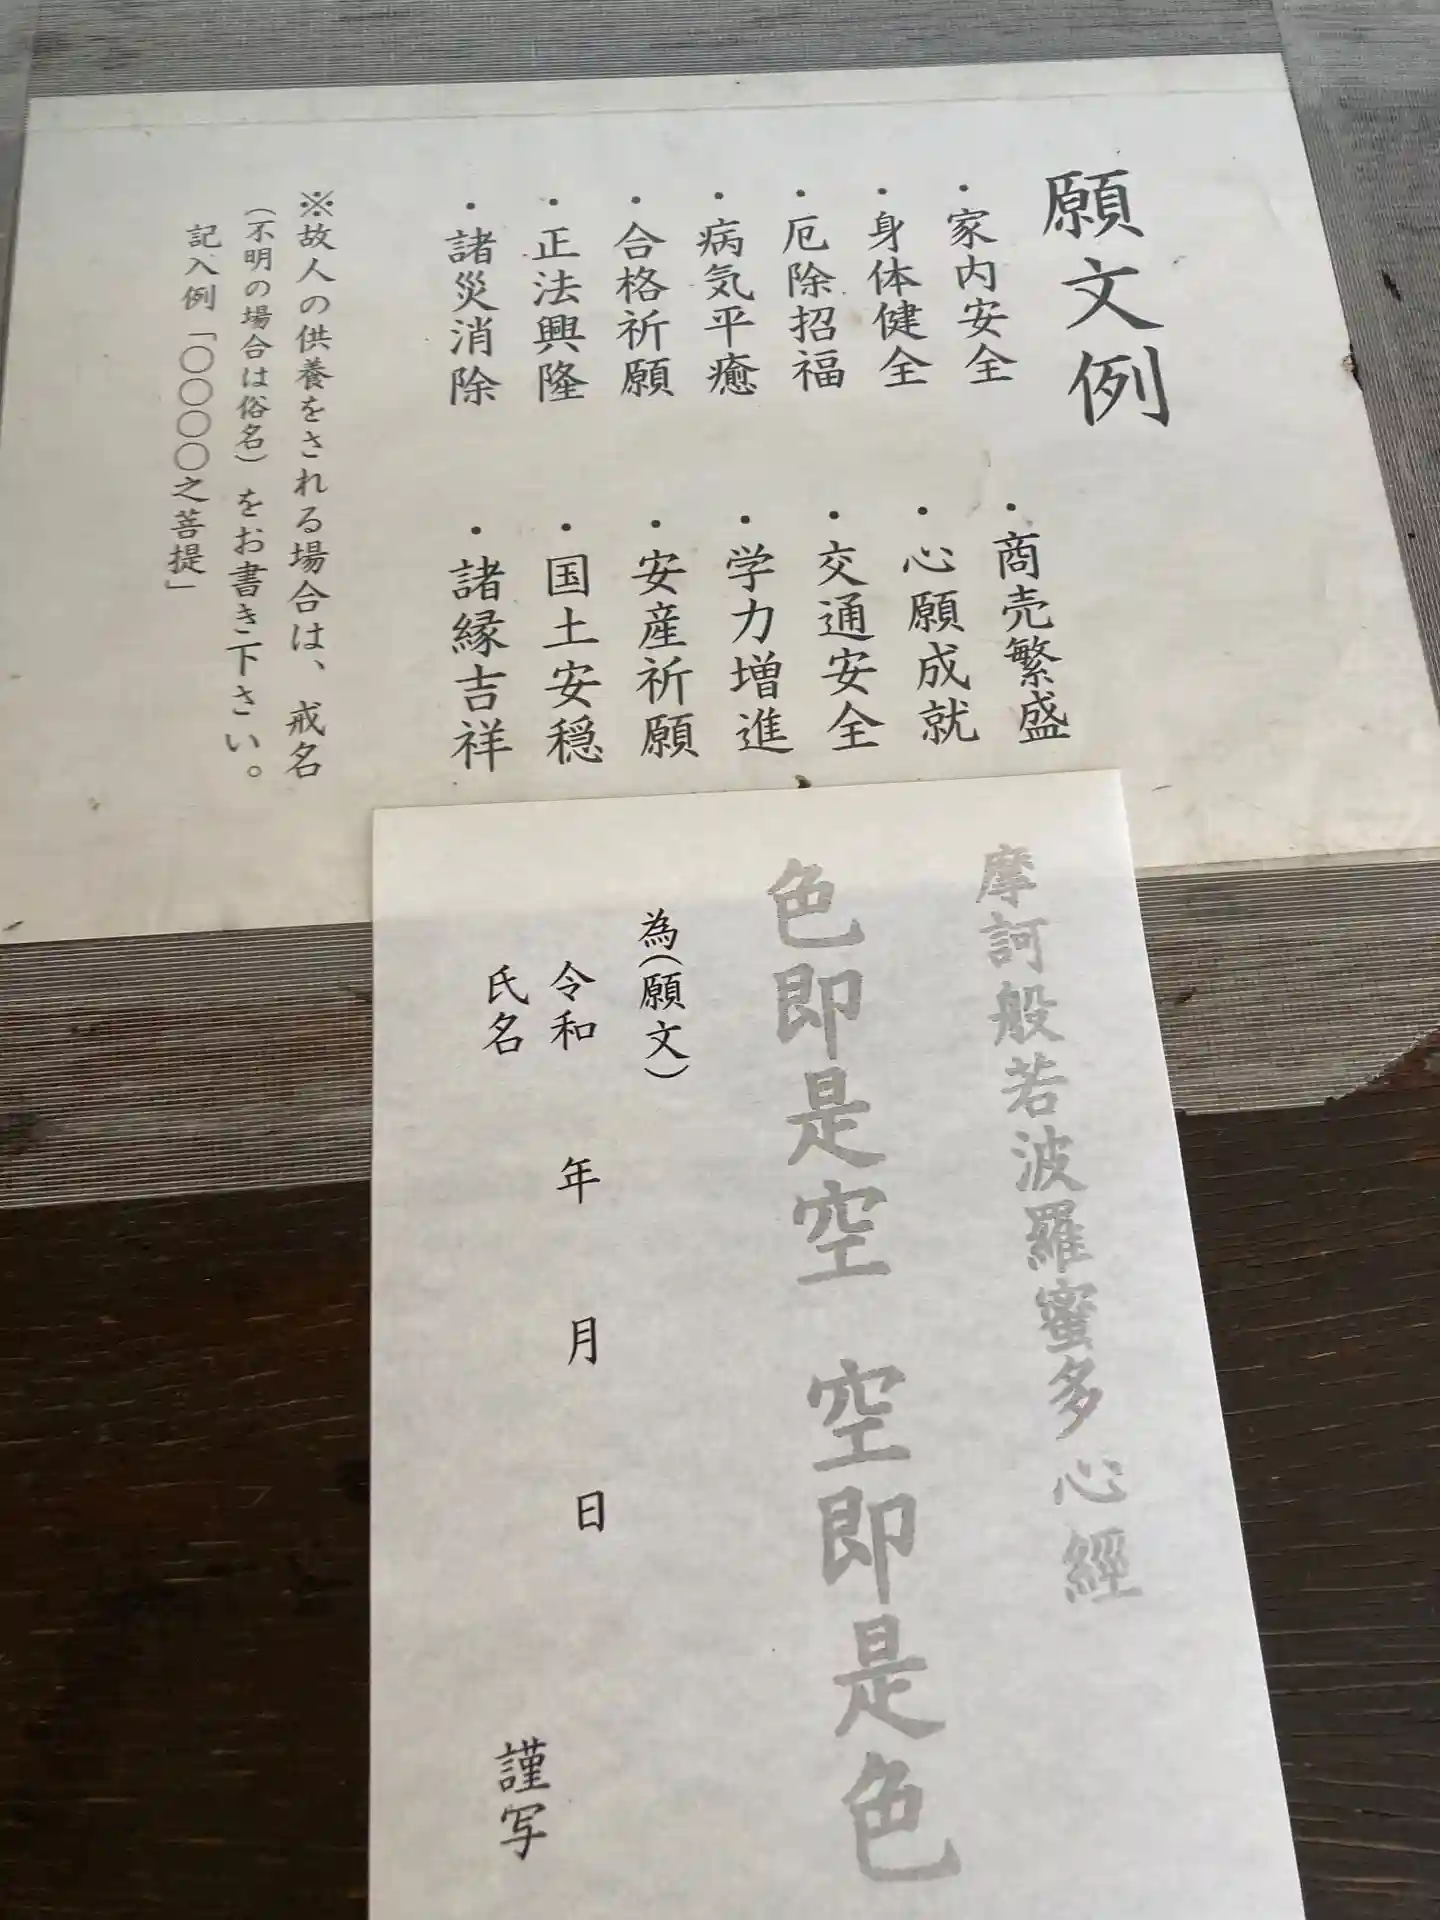 願文例
・家内安全
・身体健全
・厄除招福
・病気平癒
・合格祈願
・正法興隆
・諸災消除
・商売繁盛
・心願成就
・交通安全
・学力増進
・安産祈願
・国土安穏
・諸縁吉祥
※故人の供養をされる場合は、戒名
(不明の場合は俗名)をお書き下さい。
記入例「〇〇〇〇之菩提」
摩訶般若波羅蜜多心經
色即是空 空即是色
為(願文)
令和 年 月 日
氏名 謹写